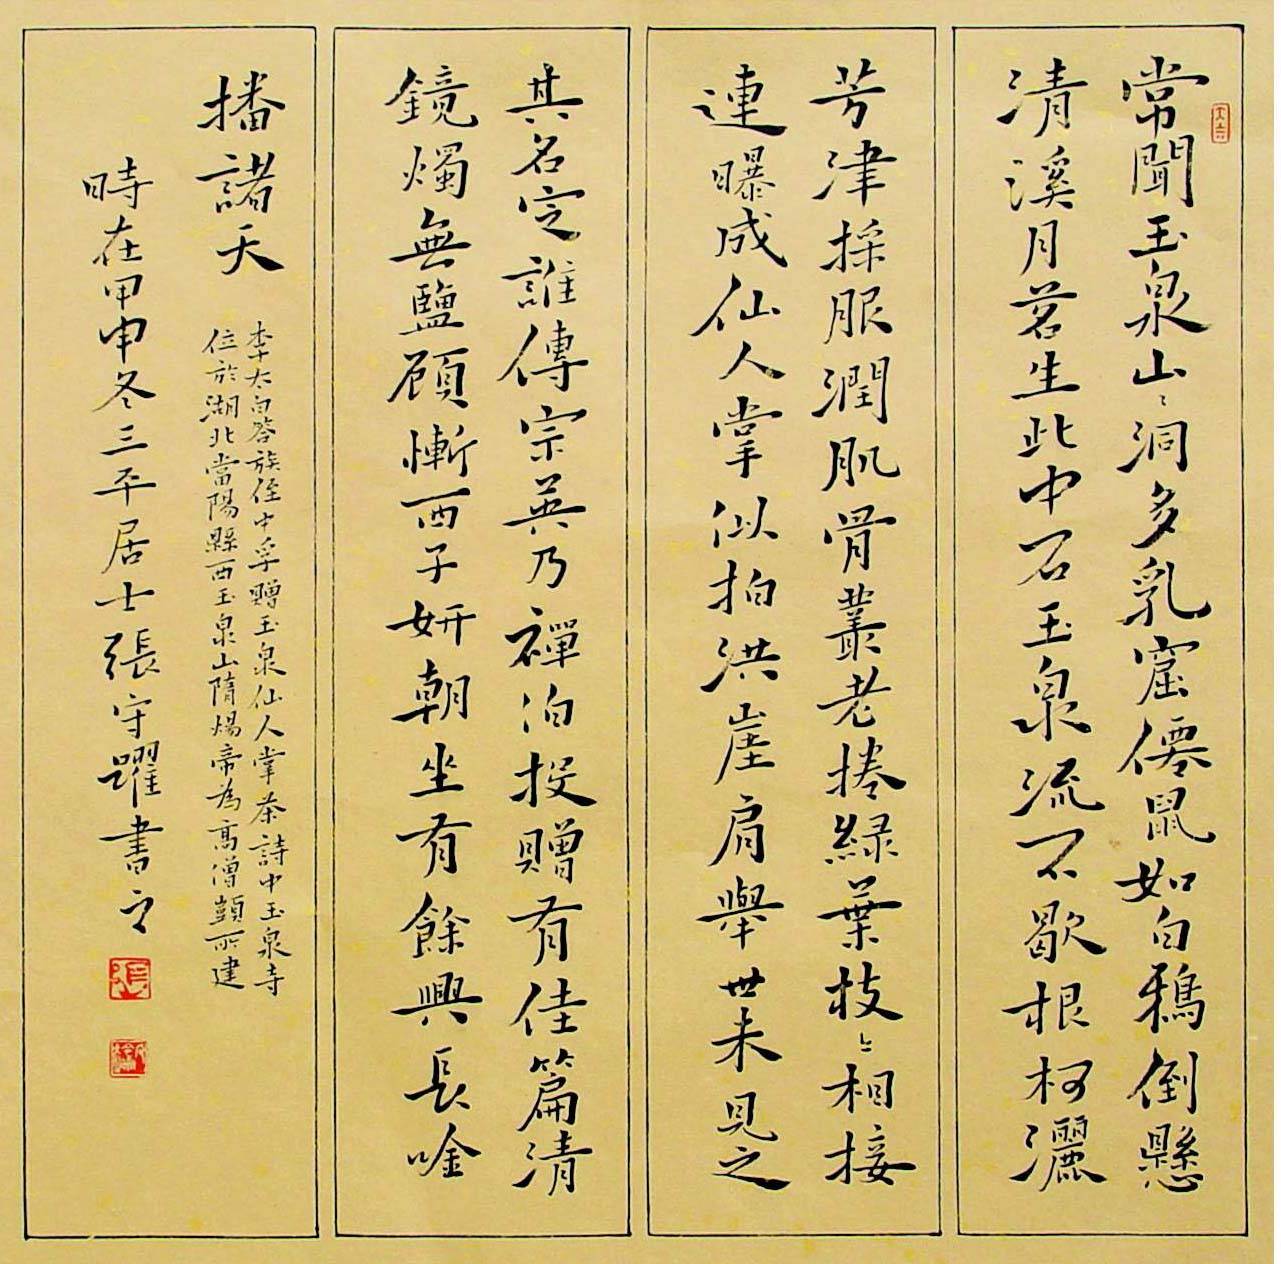 常聞玉泉山〻洞多乳窟僊鼠如白鴉倒懸
清溪月茗生此中石玉泉流不歇根柯灑
芳津採服潤肌骨叢老捲綠葉枝〻相接
連曝成仙人掌似拍洪崖肩舉世未見之
其名定誰傳宗英乃禪泊投贈有佳篇清
鏡燭無鹽顧慚西子妍朝坐有餘興長唫
播諸天
李太白答族侄中孚贈玉泉仙人掌茶詩中玉泉寺
位於湖北當陽縣西玉泉山隋煬帝為高僧顗所建
時在甲申冬三平居士張守躍書之